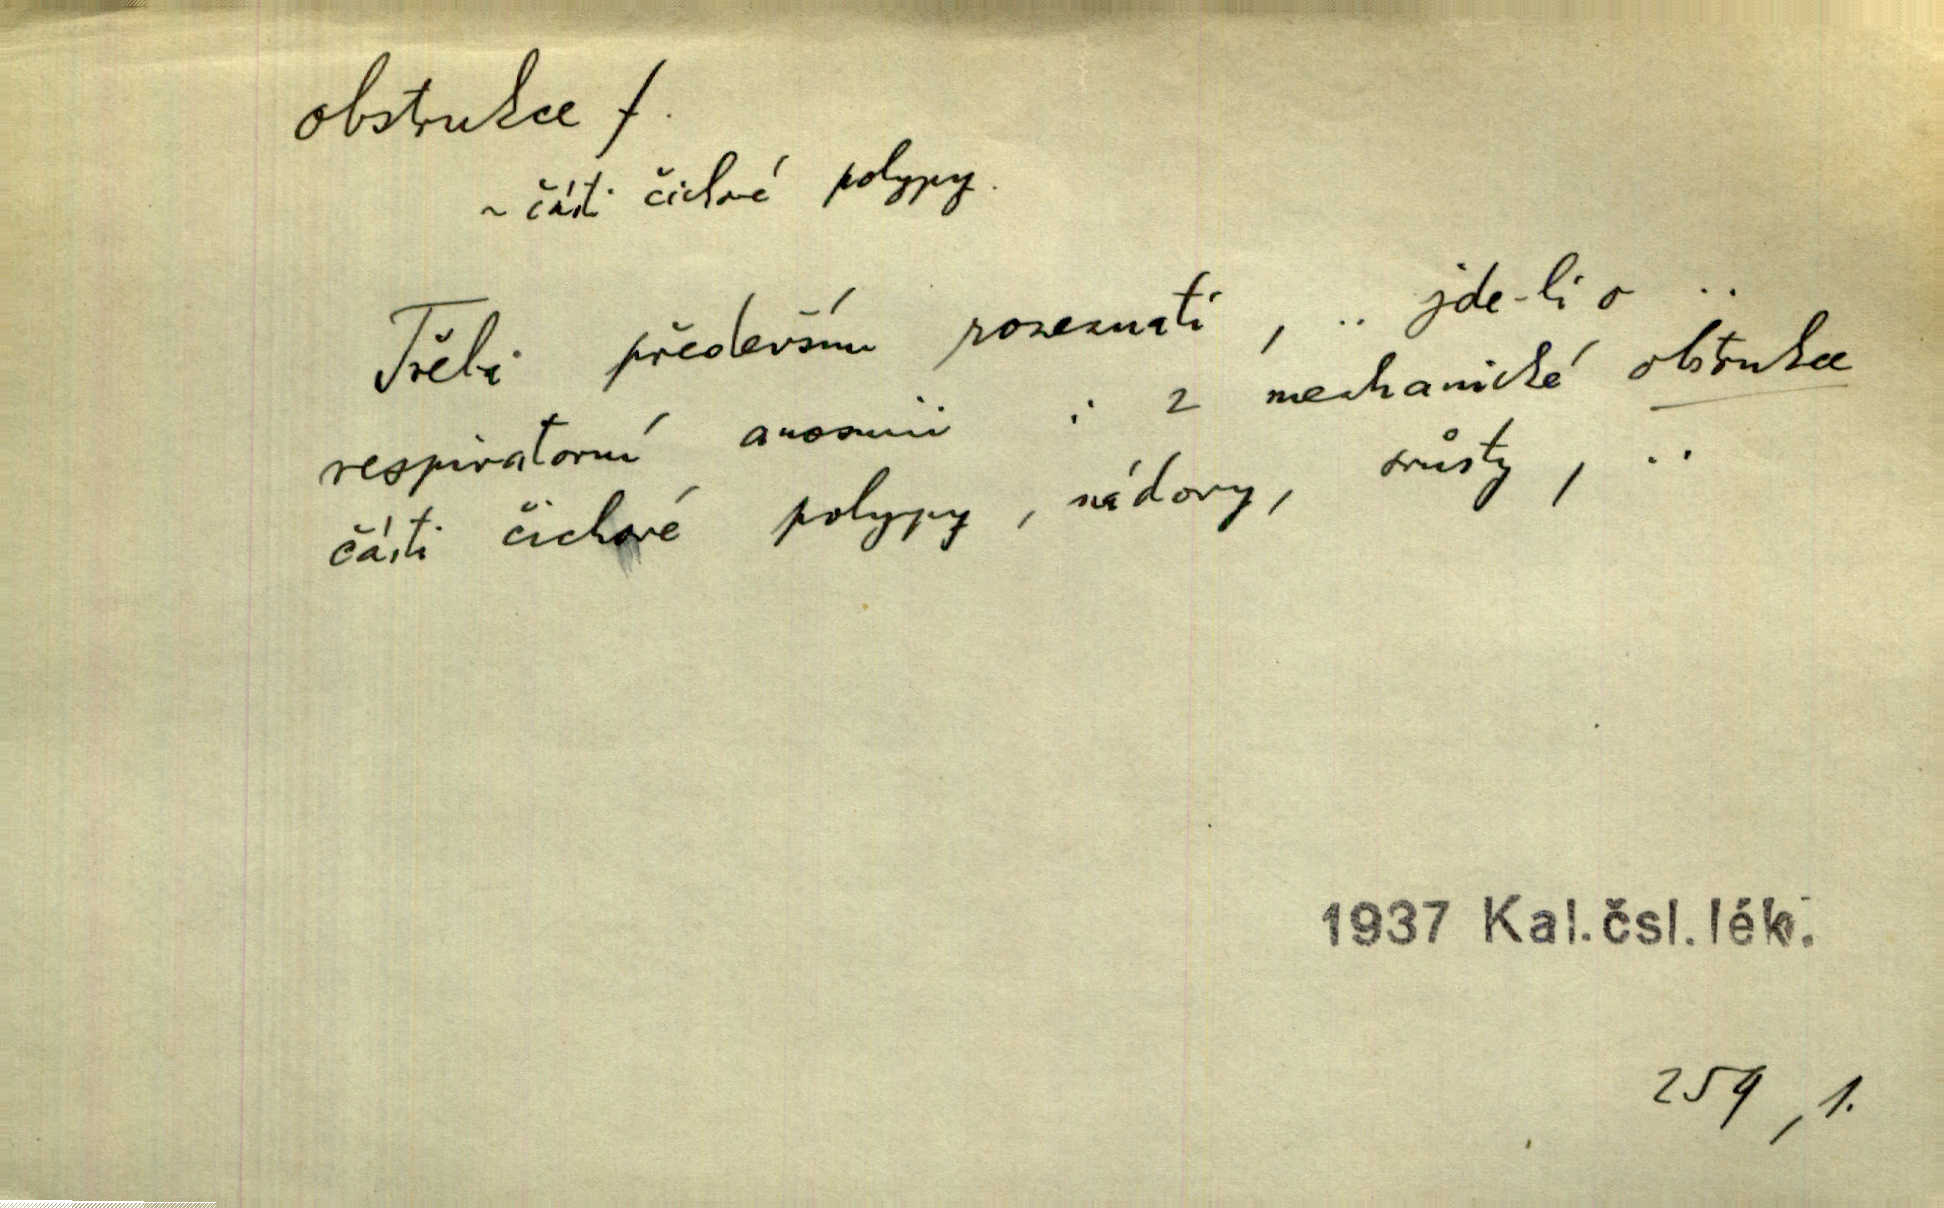 obstrukce f.
~ části čichové polypy.
Třeba především rozeznati, .. jde-li o ..
respiratorní anosmii : z mechanické obstrukce
části čichové polypy, nádory, srůsty, ..
1937 Kal.čsl.lék.
259, 1.